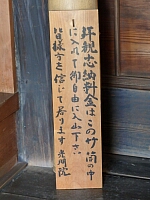 拝観志納料金はこの竹筒の中
に入れて御自由に入山下さい
皆様方を信じて居ります 光明院